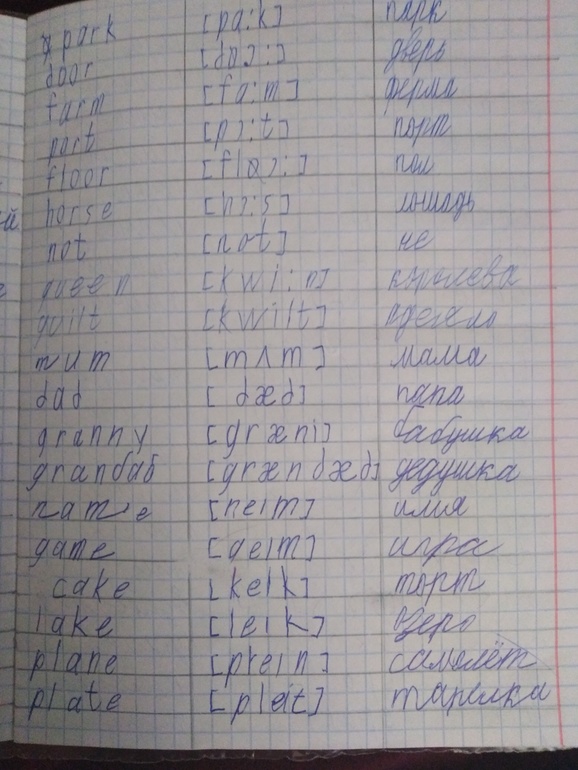 park [pa:k] парк
door [dɔ:] дверь
farm [fa:m] ферма
port [pɔ:t] порт
floor [flɔ:] пол
horse [hɔ:s] лошадь
not [not] не
queen [kwi:n] королева
quilt [kwilt] одеяло
mum [mʌm] мама
dad [dæd] папа
granny [græni] бабушка
grandab [grændæd] дедушка
name [neim] имя
game [geim] игра
cake [keik] торт
lake [leik] озеро
plane [plein] самолёт
plate [pleit] тарелка